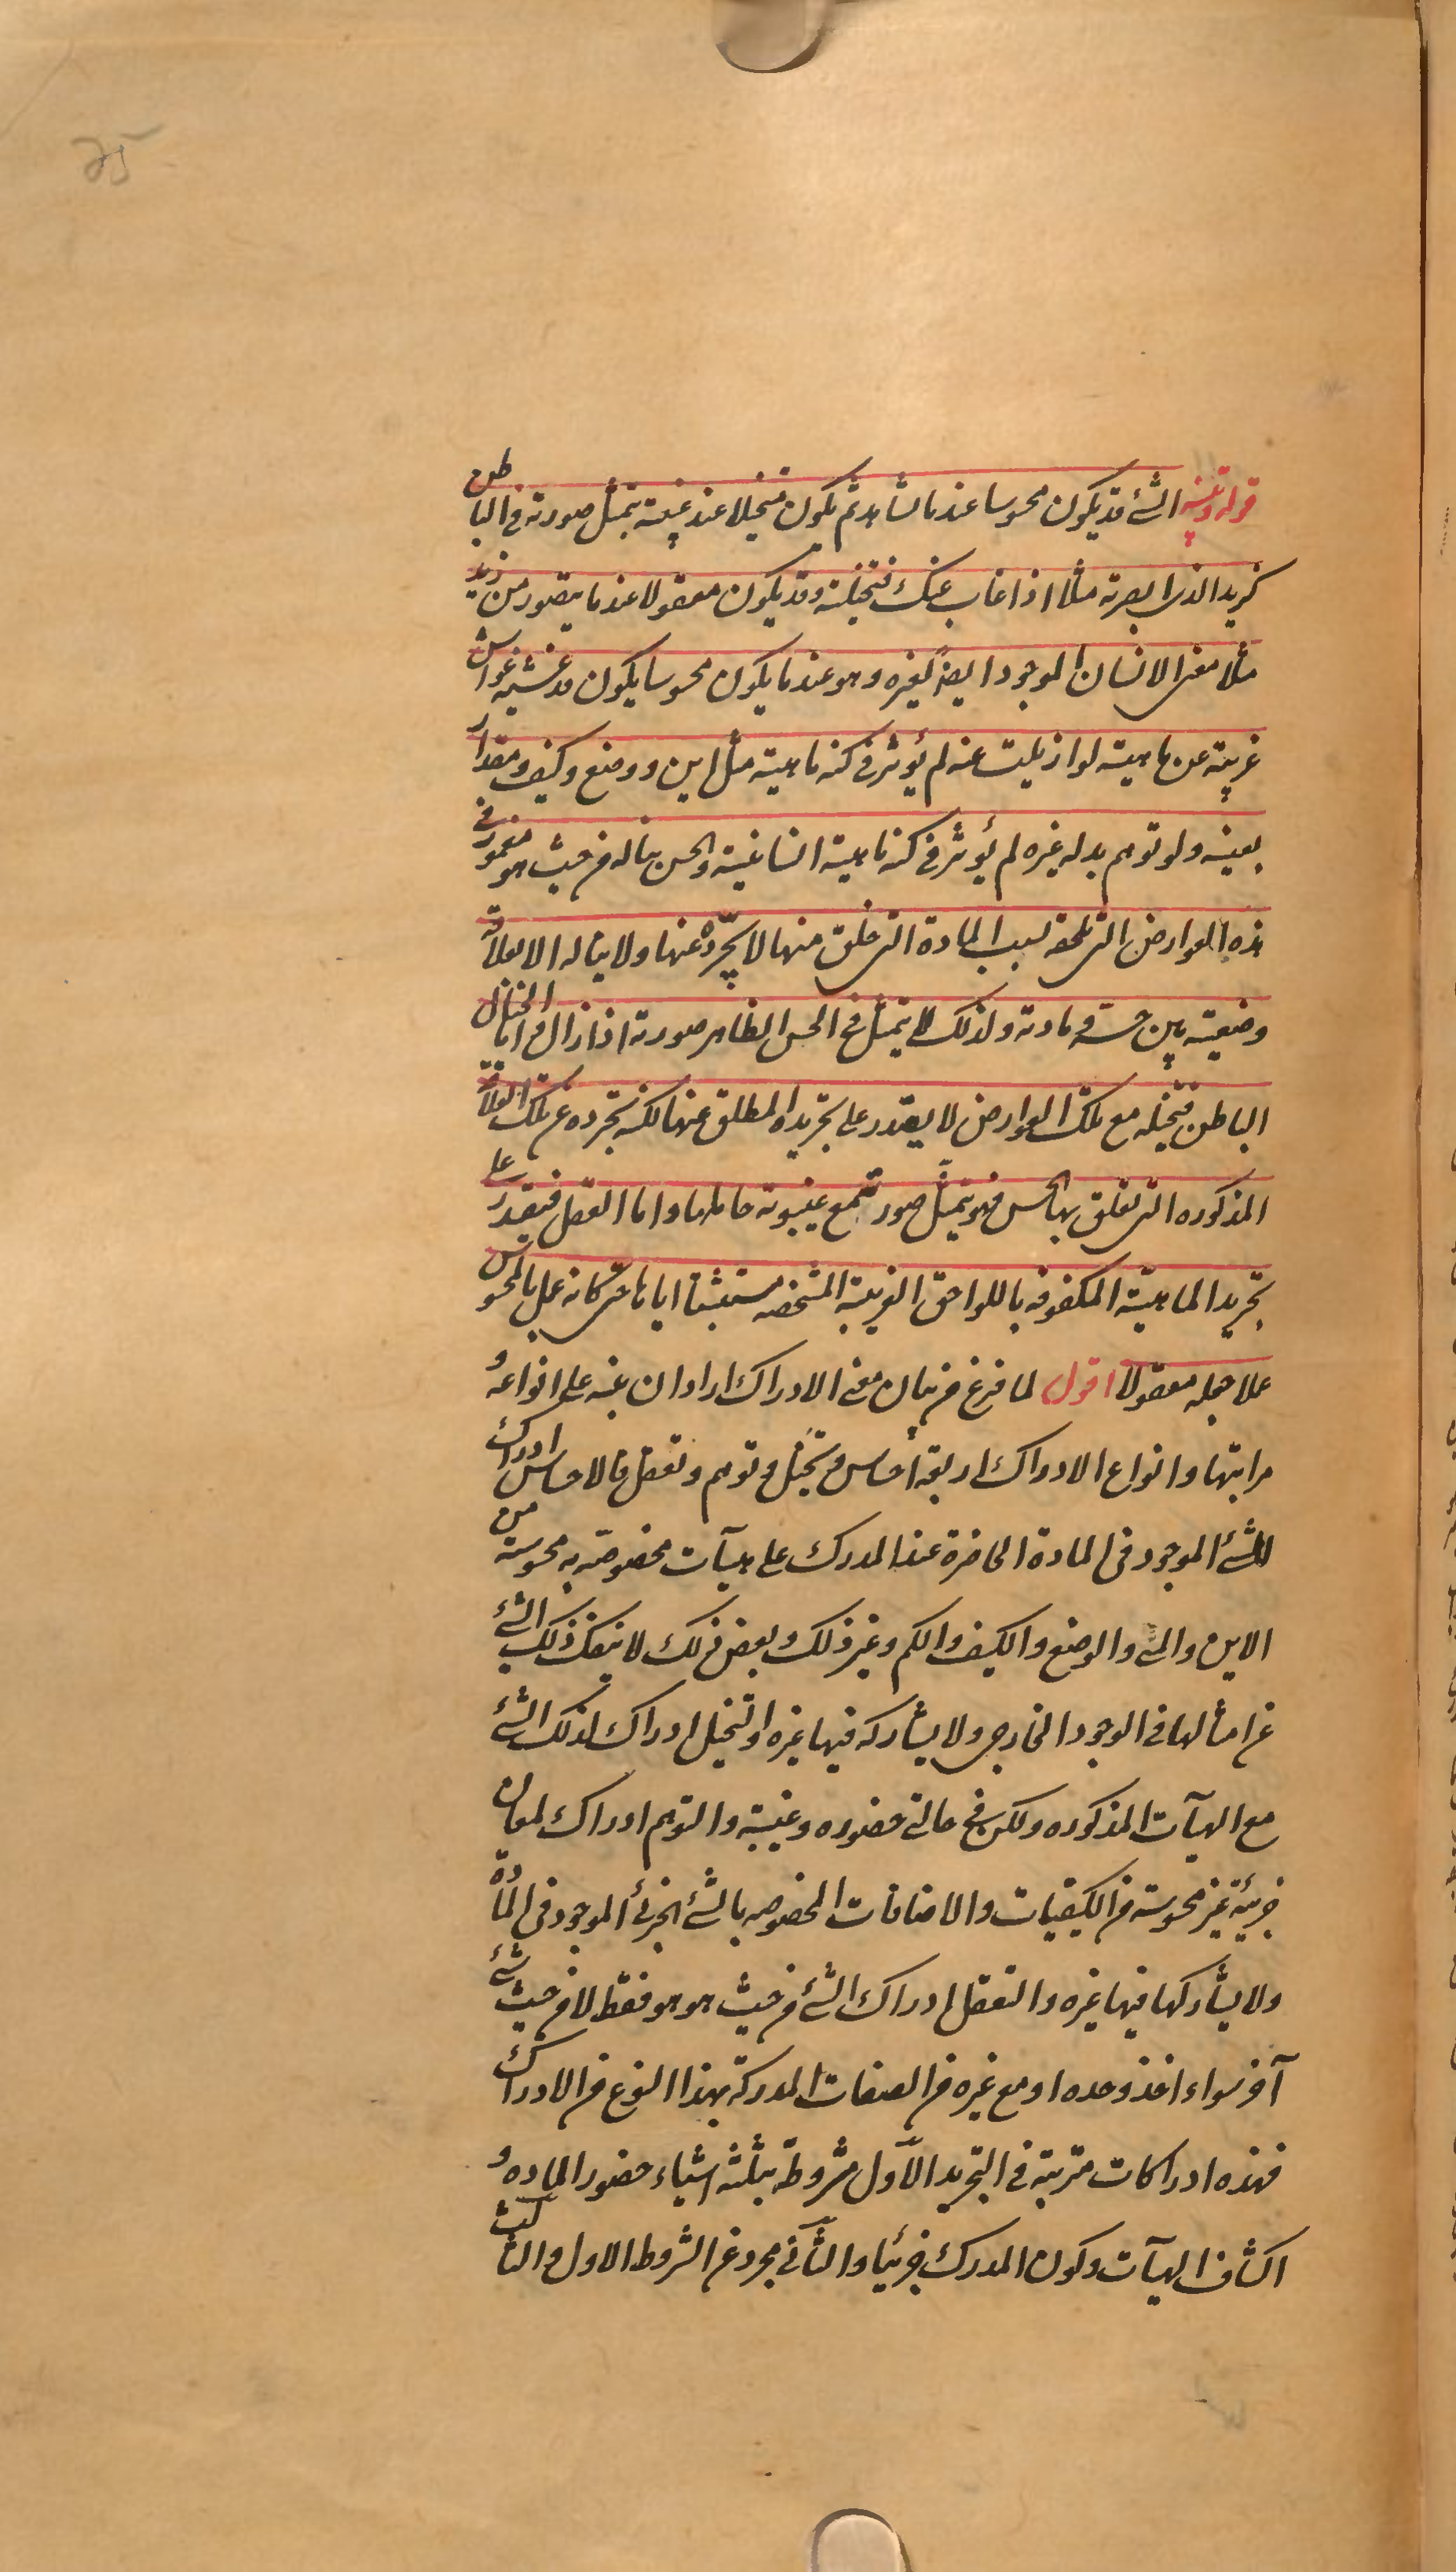 25
قوله تنبيه الشئ قد يكون محسوسا عندما يشاهد ثم يكون متخيلا عند غيبته بتمثل صورته في الباطن
كزيد الذى ابصرته مثلا اذا غاب عنك فتخيلته وقد يكون معقولا عندما يتصور من زيد
مثلا معنى الانسان الموجود ايضا لغيره وهو عندما يكون محسوسا يكون قد غشيته غواش
غريبة عن ماهيته لو ازيلت عنه لم يؤثر في كنه ماهيته مثل اين و وضع وكيف ومقدار
بعينه ولو توهم بدله غيره لم يؤثر في كنه ماهية انسانيته والحس يناله من حيث هو مغمور في
هذه العوارض التى تلحقه بسبب المادة التى خلق منها لا يجرده عنها ولا يناله الا بعلاقة
وضعية بين حسه و مادته ولذلك لا يتمثل في الحس الظاهر صورته اذا زال واما الخيال
الباطن فتخيله مع تلك العوارض لا يقدر على تجريده المطلق عنها لكنه تجرده عن تلك العلاقة
المذكوره التى تعلق بها الحس فهو يتمثل صورته مع غيبوبة حاملها واما العقل فيقدر على
تجريد الماهية المكفوفه باللواحق الغريبة المشخصه مستثبتا اياها حتى كانه عمل بالمحسوس
عملا جعله معقولا اقول لما فرغ من بيان معنى الادراك اراد ان ينبه على انواعه و
مراتبها وانواع الادراك اربعة احساس و تخيل و توهم وتعقل فالاحساس ادراك
للشئ الموجود فى المادة الحاضرة عند المدرك على هيآت مخصوصة به محسوسة من
الاين والمتى والوضع والكيف والكم وغير ذلك و بعض ذلك لا ينفك ذلك الشئ
عن امثالها فى الوجود الخارجى ولا يشاركه فيها غيره والتخيل ادراك لذلك الشئ
مع الهيآت المذكوره ولكن في حالتى حضوره وغيبته والتوهم ادراك لمعان
جزيئة غير محسوسة من الكيفيات والاضافات المخصوصه بالشئ الجزئى الموجود فى المادة
ولا يشاركها فيها غيره والتعقل ادراك الشئ من حيث هو هو فقط لا من حيث شئ
آخر سواء اخذ وحده او مع غيره من الصفات المدركة بهذا النوع من الادراك
فهذه ادراكات مترتبة فى التجريد الاول مشروطة بثلثة اشياء حضور الماده و
اكتناف الهيآت وكون المدرك جزئيا والثاني مجرد عن الشروط الاول والثالث